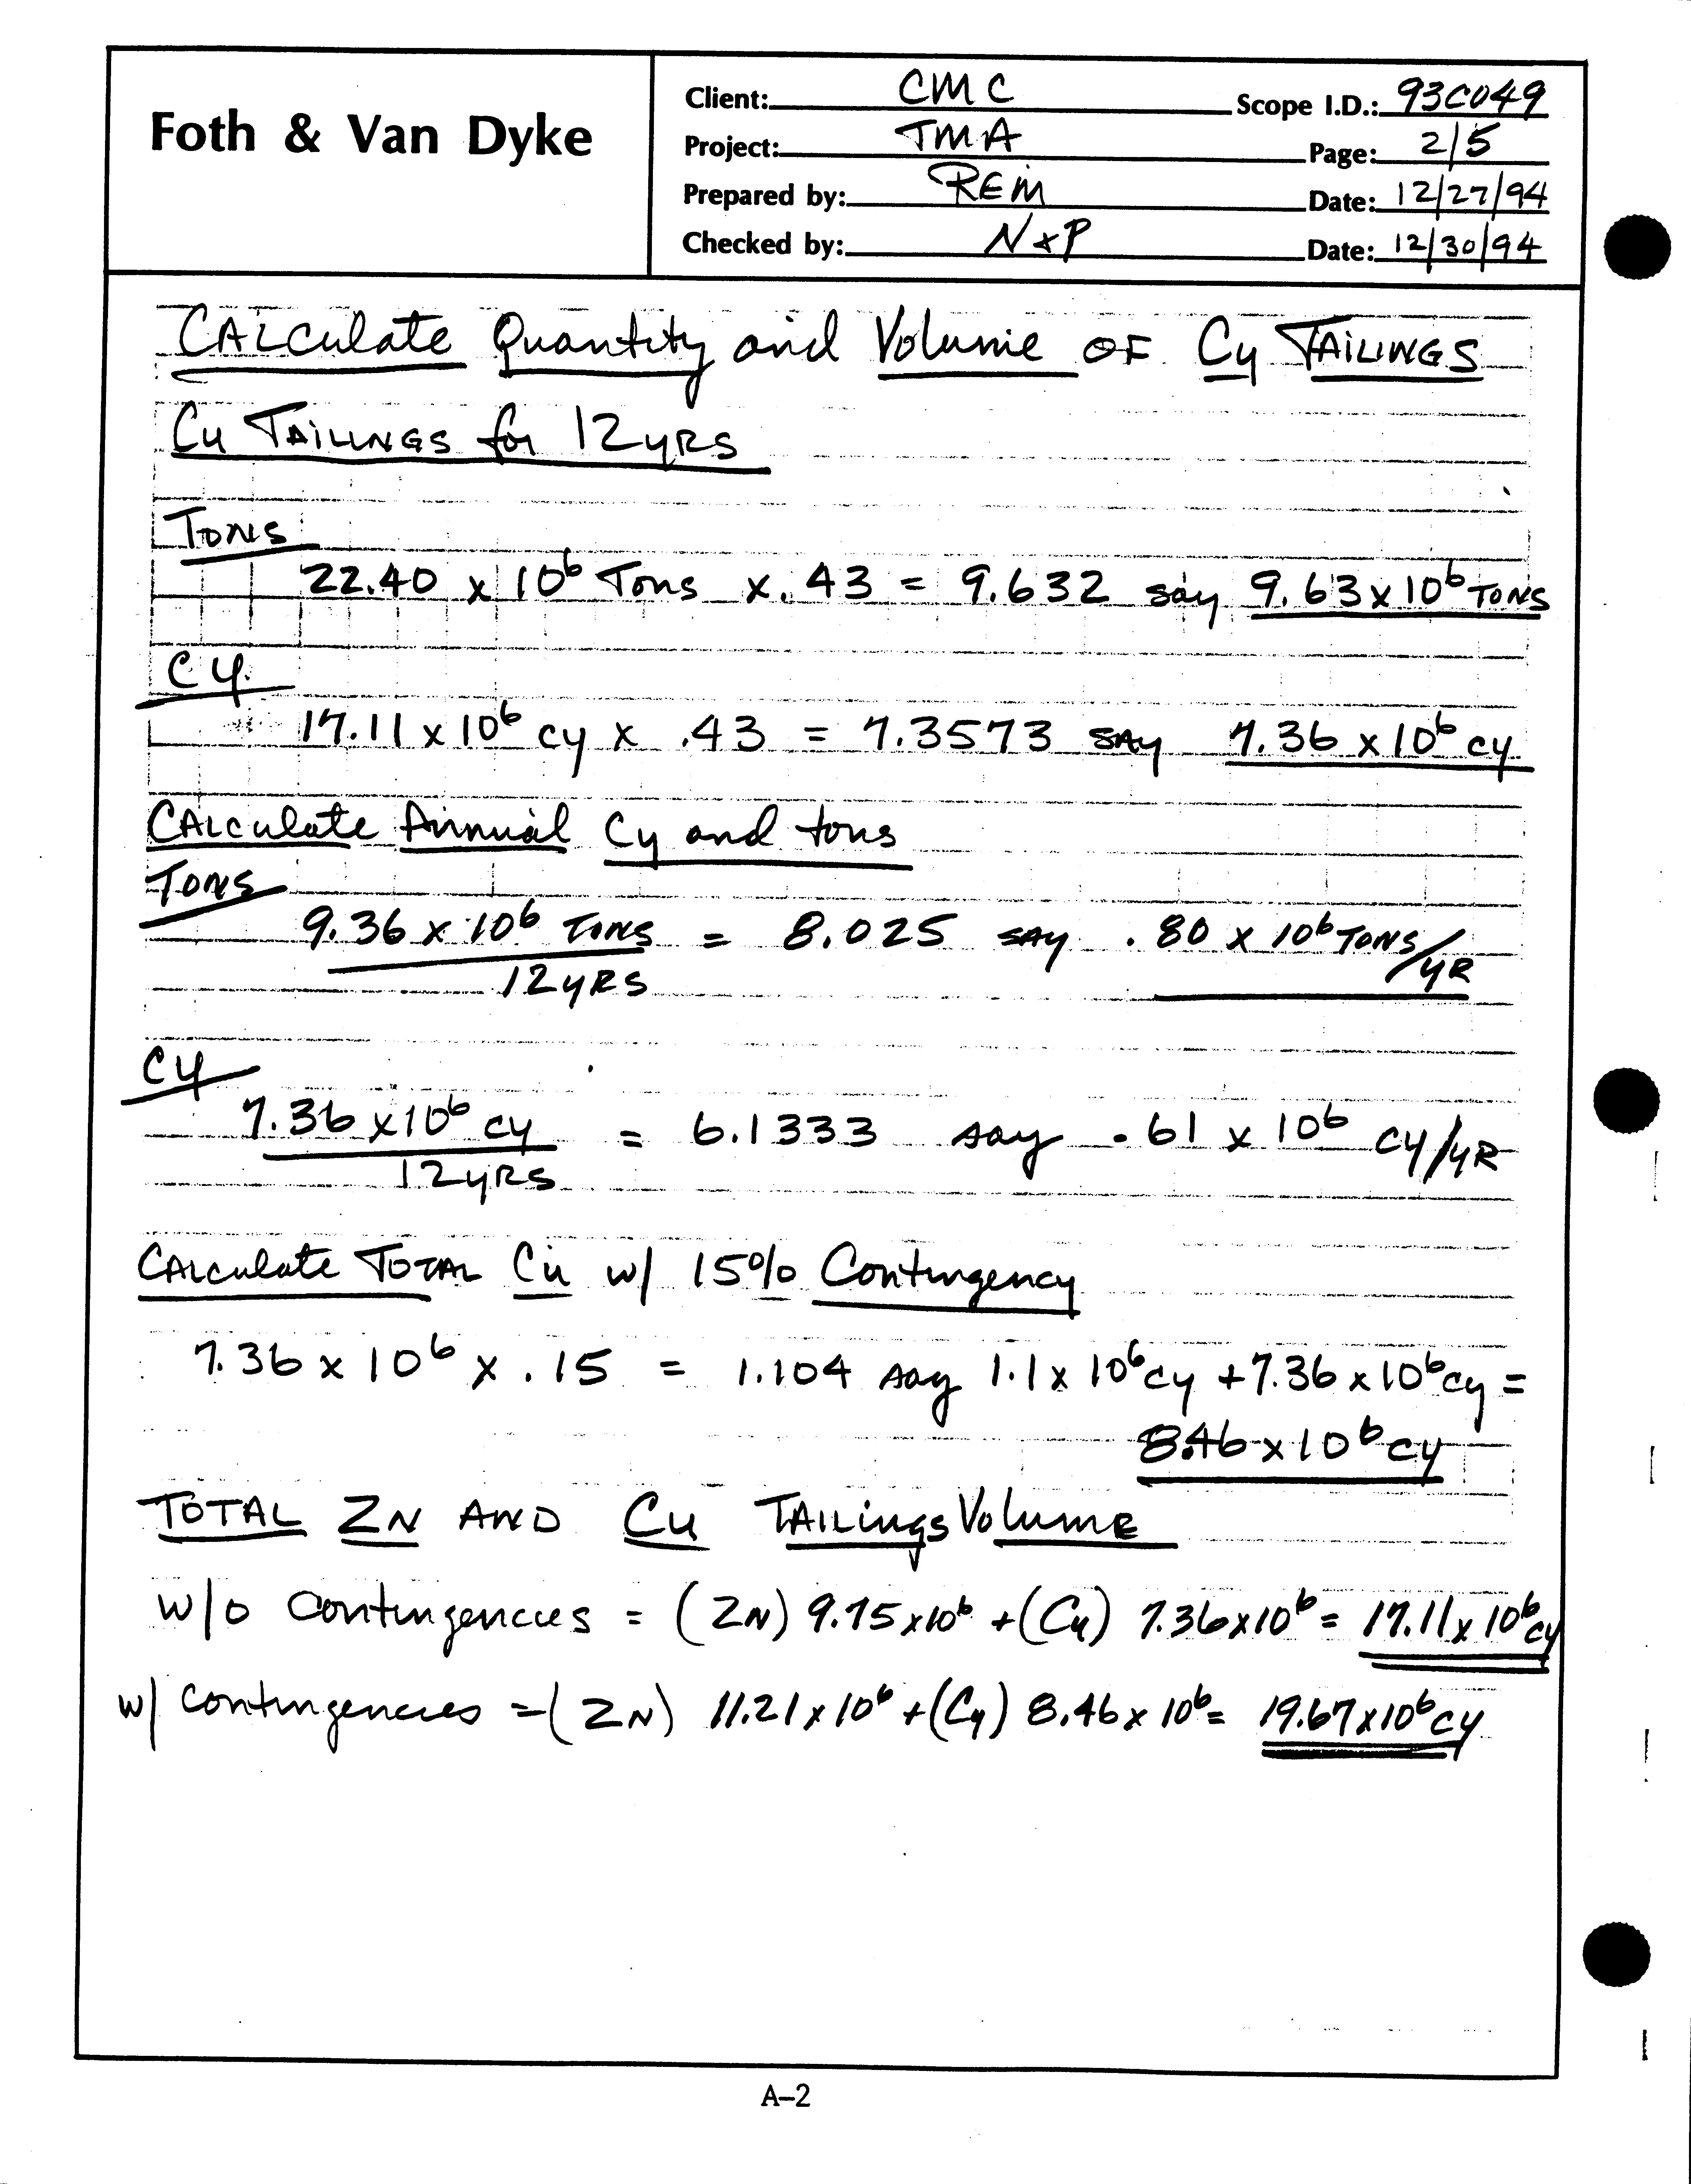 Foth & Van Dyke
Client: CMC Scope I.D.: 93C049
Project: TMA Page: 2/5
Prepared by: REM Date: 12/27/94
Checked by: NXP Date: 12/30/94
CALCulate Quantity and Volume OF Cu TAILINGS
Cu TAILINGS for 12 YRS
Tons
22.40 x 10⁶ Tons x .43 = 9.632 say 9.63 x 10⁶ TONS
CY
17.11 x 10⁶ cy x .43 = 7.3573 SAY 7.36 x 10⁶ cy
CALCulate Annual Cy and tons
TONS
9.36 x 10⁶ TONS = 8.025 SAY .80 x 10⁶ TONS/YR
12 YRS
CY
7.36 x 10⁶ cy = 6.1333 say .61 x 10⁶ CY/YR
12 YRS
CALCulate TOTAL Cu w/ 15% Contingency
7.36 x 10⁶ x .15 = 1.104 say 1.1 x 10⁶ cy + 7.36 x 10⁶ cy =
8.46 x 10⁶ cy
TOTAL ZN AND Cu TAILings VOLUME
w/o contingencies = (ZN) 9.75 x 10⁶ + (Cu) 7.36 x 10⁶ = 17.11 x 10⁶ cy
w/ contingencies = (ZN) 11.21 x 10⁶ + (Cu) 8.46 x 10⁶ = 19.67 x 10⁶ cy
A-2